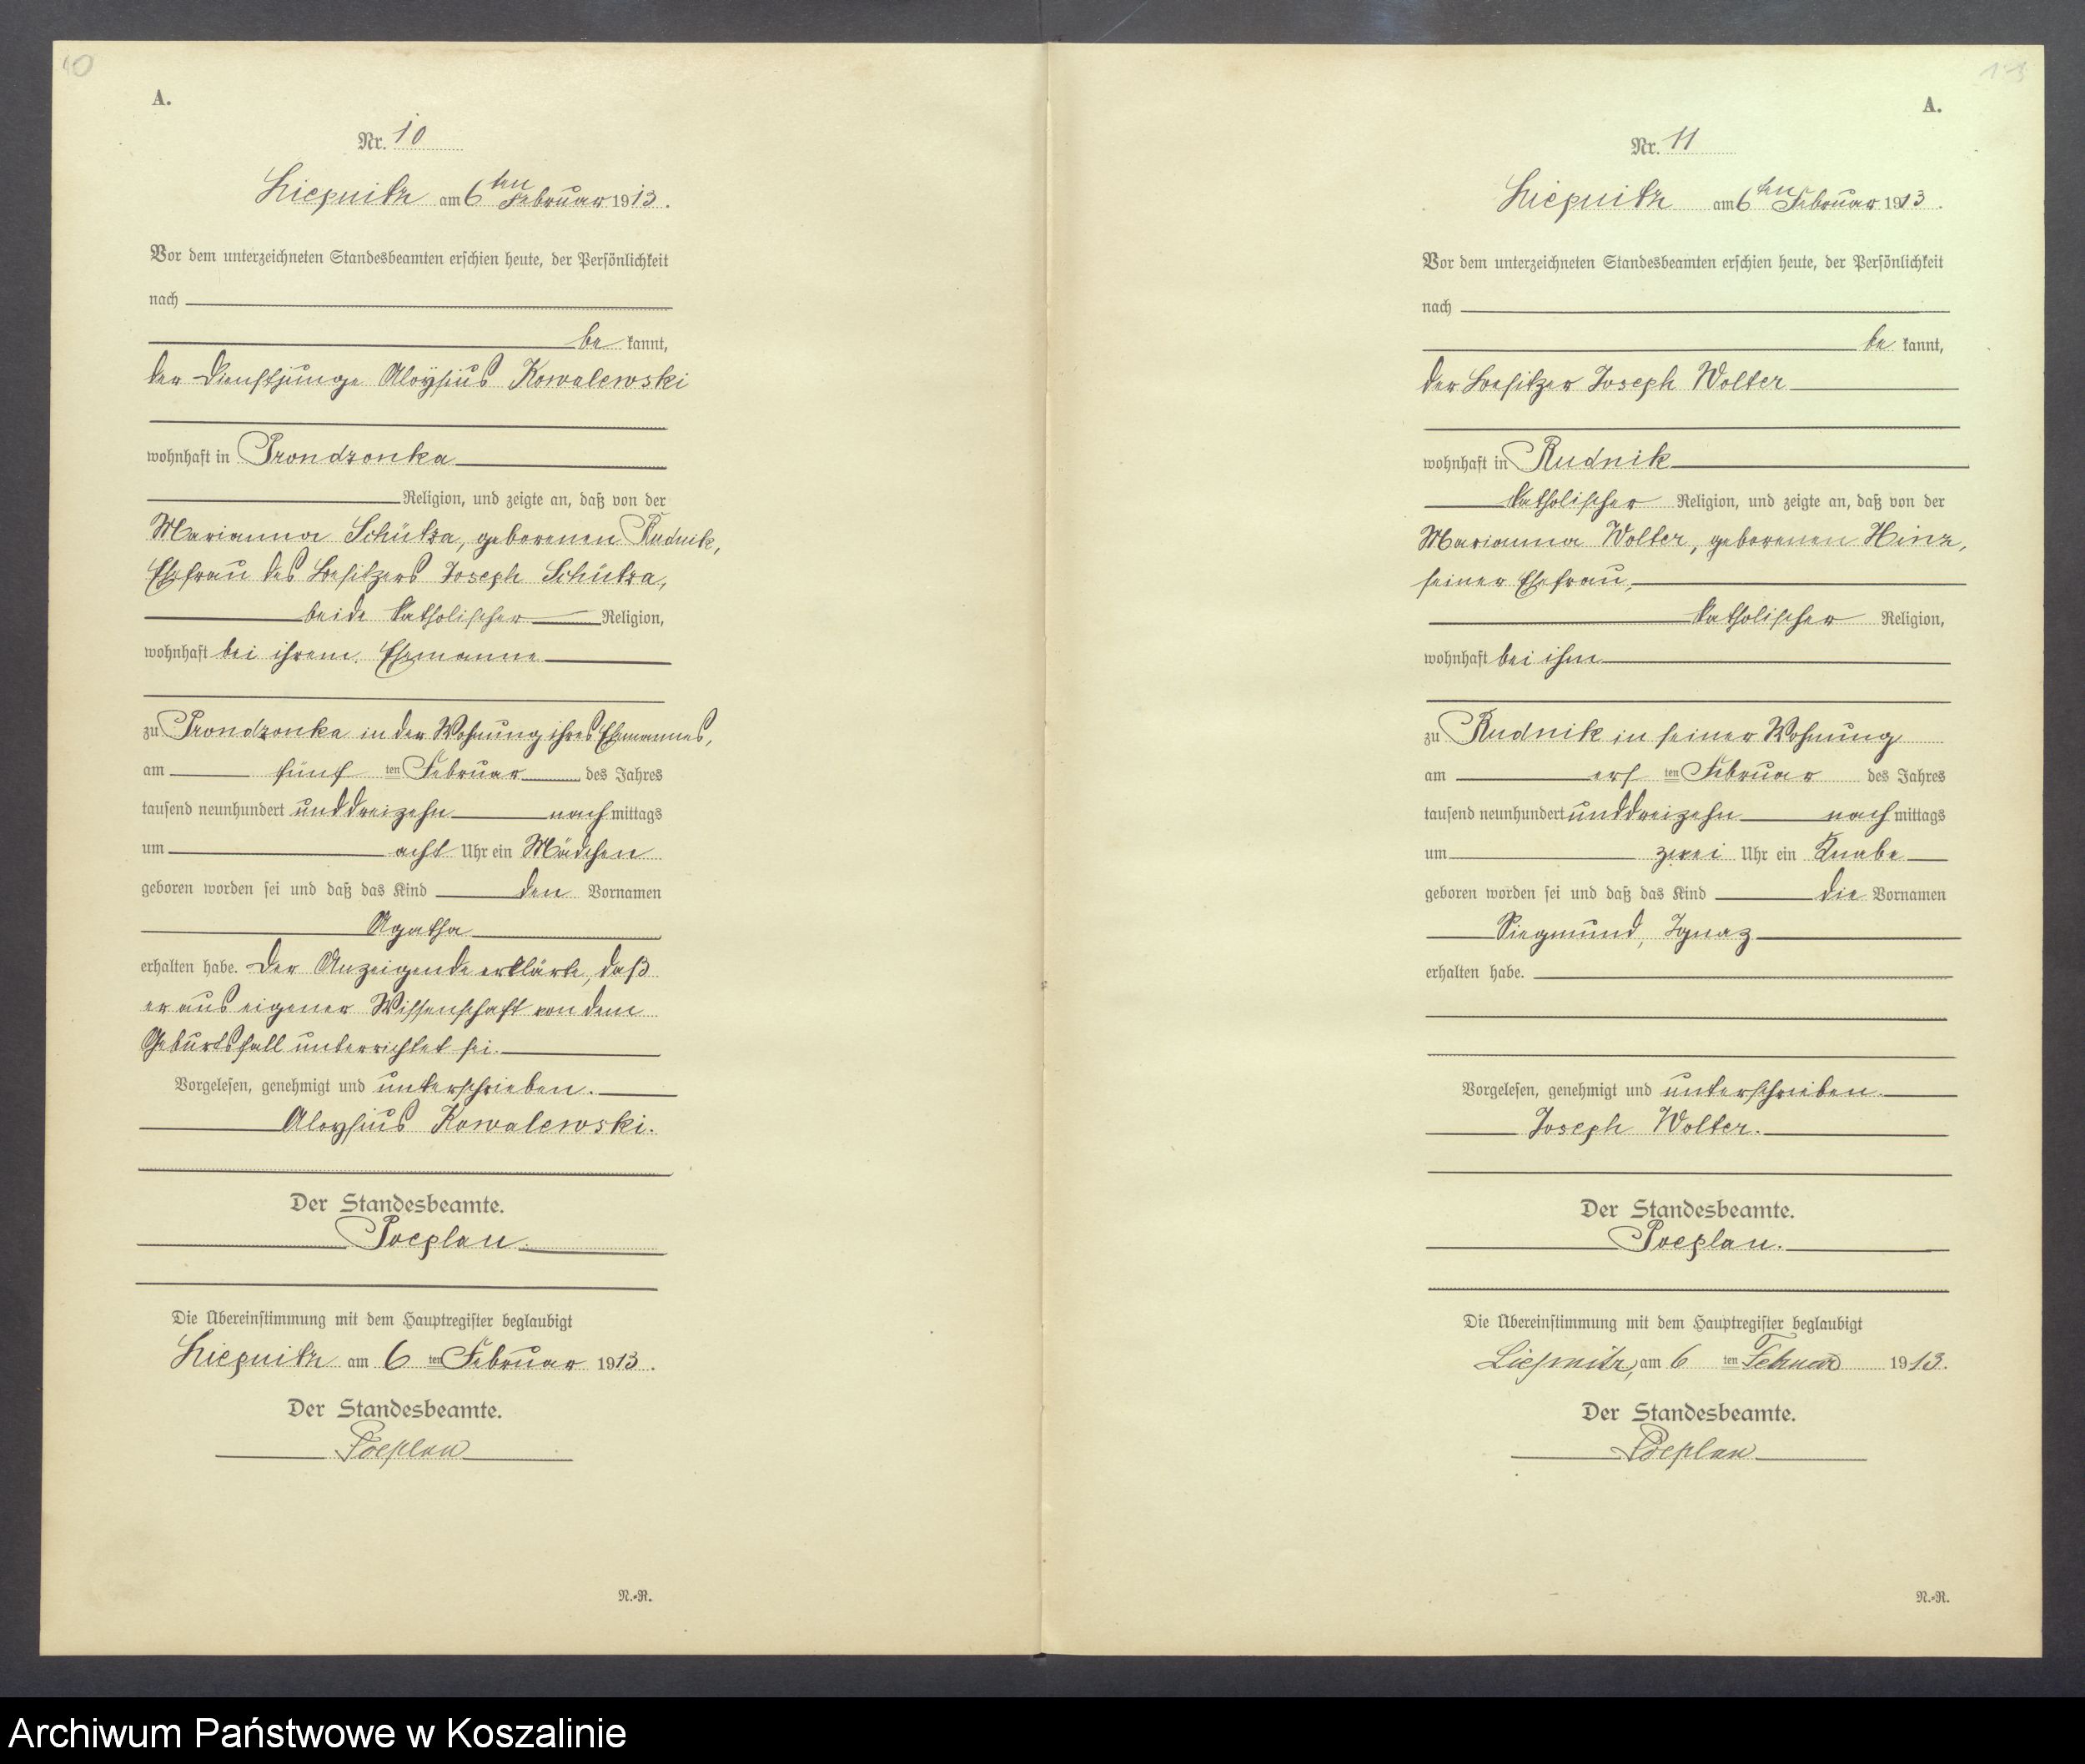 10
A.
Nr. 10
Liepnitz am 6ten Februar 1913.
Vor dem unterzeichneten Standesbeamten erschien heute, der Persönlichkeit
nach
be kannt,
der Dienstjunge Aloysius Kowalewski
wohnhaft in Prondzonka
Religion, und zeigte an, daß von der
Marianna Schütza, geborenen Rudnik,
Ehefrau des Besitzers Joseph Schütza,
beide katholischer Religion,
wohnhaft bei ihrem Ehemanne
zu Prondzonka in der Wohnung ihres Ehemannes,
am fünf ten Februar des Jahres
tausend neunhundert unddreizehn nach mittags
um acht Uhr ein Mädchen
geboren worden sei und daß das Kind den Vornamen
Agatha
erhalten habe. Der Anzeigende erklärte, daß
er aus eigener Wissenschaft von dem
Geburtsfall unterrichtet sei.
Vorgelesen, genehmigt und unterschrieben.
Aloysius Kowalewski.
Der Standesbeamte.
Poeplau.
Die Übereinstimmung mit dem Hauptregister beglaubigt
Liepnitz am 6 ten Februar 1913.
Der Standesbeamte.
Poeplau
N.-R.
A.
Nr. 11
Liepnitz am 6ten Februar 1913.
Vor dem unterzeichneten Standesbeamten erschien heute, der Persönlichkeit
nach
be kannt,
der Besitzer Joseph Wolter
wohnhaft in Rudnik
katholischer Religion, und zeigte an, daß von der
Marianna Wolter, geborenen Hinz,
seiner Ehefrau,
katholischer Religion,
wohnhaft bei ihm
zu Rudnik in seiner Wohnung
am ers ten Februar des Jahres
tausend neunhundert unddreizehn nach mittags
um zwei Uhr ein Knabe
geboren worden sei und daß das Kind die Vornamen
Siegmund, Ignaz
erhalten habe.
Vorgelesen, genehmigt und unterschrieben.
Joseph Wolter.
Der Standesbeamte.
Poeplau.
Die Übereinstimmung mit dem Hauptregister beglaubigt
Liepnitz, am 6 ten Februar 1913.
Der Standesbeamte.
Poeplau
N.-R.
Archiwum Państwowe w Koszalinie